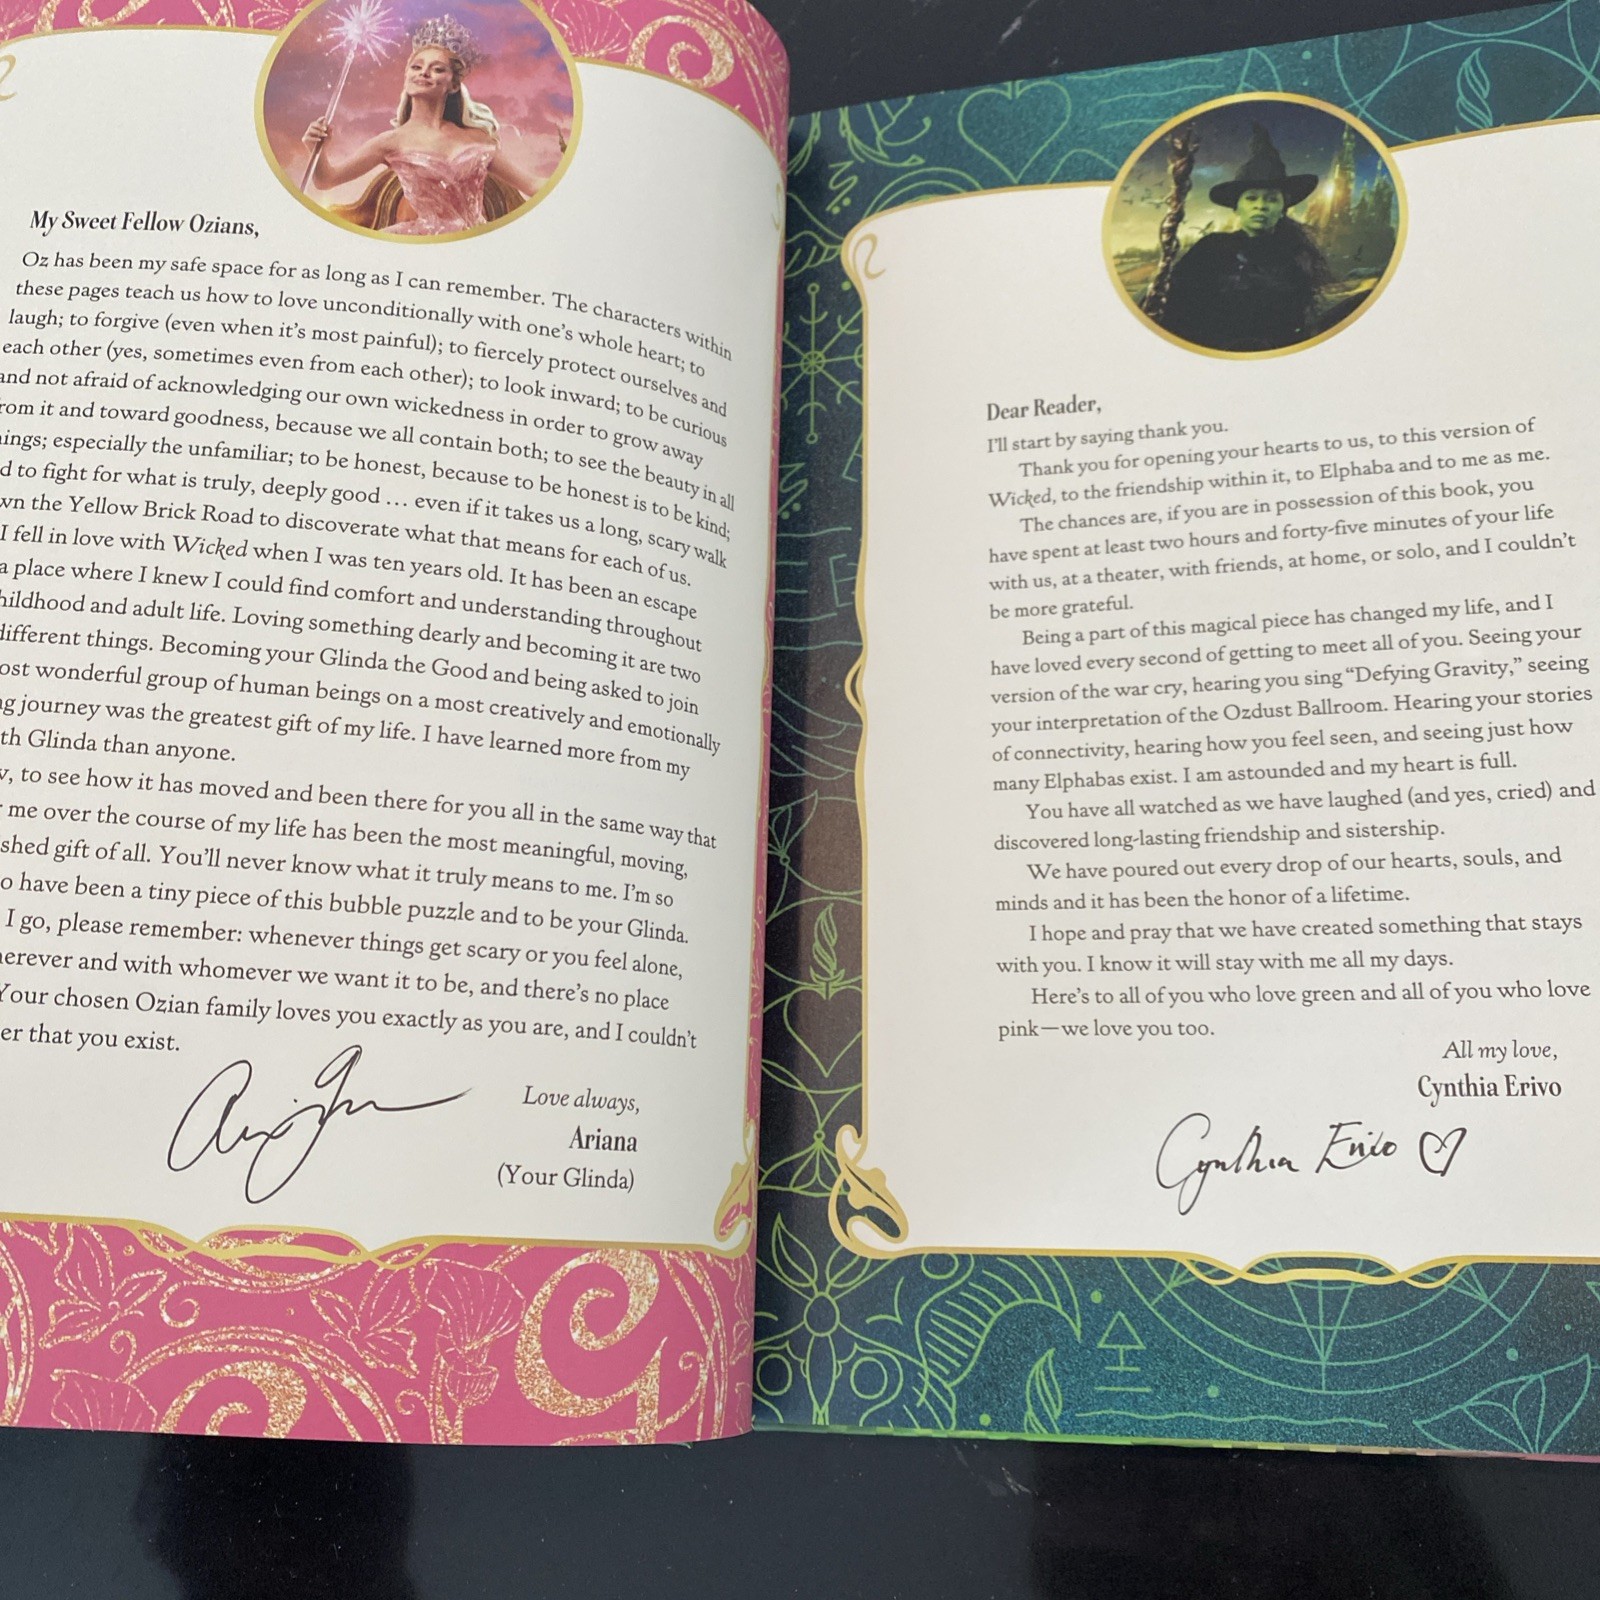 My Sweet Fellow Ozians,
Oz has been my safe space for as long as I can remember. The characters within
these pages teach us how to love unconditionally with one's whole heart; to
laugh; to forgive (even when it's most painful); to fiercely protect ourselves and
each other (yes, sometimes even from each other); to look inward; to be curious
and not afraid of acknowledging our own wickedness in order to grow away
rom it and toward goodness, because we all contain both; to see the beauty in all
ings; especially the unfamiliar; to be honest, because to be honest is to be kind;
d to fight for what is truly, deeply good … even if it takes us a long, scary walk
wn the Yellow Brick Road to discoverate what that means for each of us.
I fell in love with Wicked when I was ten years old. It has been an escape
a place where I knew I could find comfort and understanding throughout
hildhood and adult life. Loving something dearly and becoming it are two
different things. Becoming your Glinda the Good and being asked to join
ost wonderful group of human beings on a most creatively and emotionally
g journey was the greatest gift of my life. I have learned more from my
th Glinda than anyone.
, to see how it has moved and been there for you all in the same way that
me over the course of my life has been the most meaningful, moving,
shed gift of all. You'll never know what it truly means to me. I'm so
o have been a tiny piece of this bubble puzzle and to be your Glinda.
I go, please remember: whenever things get scary or you feel alone,
erever and with whomever we want it to be, and there's no place
Your chosen Ozian family loves you exactly as you are, and I couldn't
er that you exist.
Love always,
Ariana
(Your Glinda)
Dear Reader,
I'll start by saying thank you.
Thank you for opening your hearts to us, to this version of
Wicked, to the friendship within it, to Elphaba and to me as me.
The chances are, if you are in possession of this book, you
have spent at least two hours and forty-five minutes of your life
with us, at a theater, with friends, at home, or solo, and I couldn't
be more grateful.
Being a part of this magical piece has changed my life, and I
have loved every second of getting to meet all of you. Seeing your
version of the war cry, hearing you sing “Defying Gravity,” seeing
your interpretation of the Ozdust Ballroom. Hearing your stories
of connectivity, hearing how you feel seen, and seeing just how
many Elphabas exist. I am astounded and my heart is full.
You have all watched as we have laughed (and yes, cried) and
discovered long-lasting friendship and sistership.
We have poured out every drop of our hearts, souls, and
minds and it has been the honor of a lifetime.
I hope and pray that we have created something that stays
with you. I know it will stay with me all my days.
Here's to all of you who love green and all of you who love
pink—we love you too.
All my love,
Cynthia Erivo
Cynthia Erivo